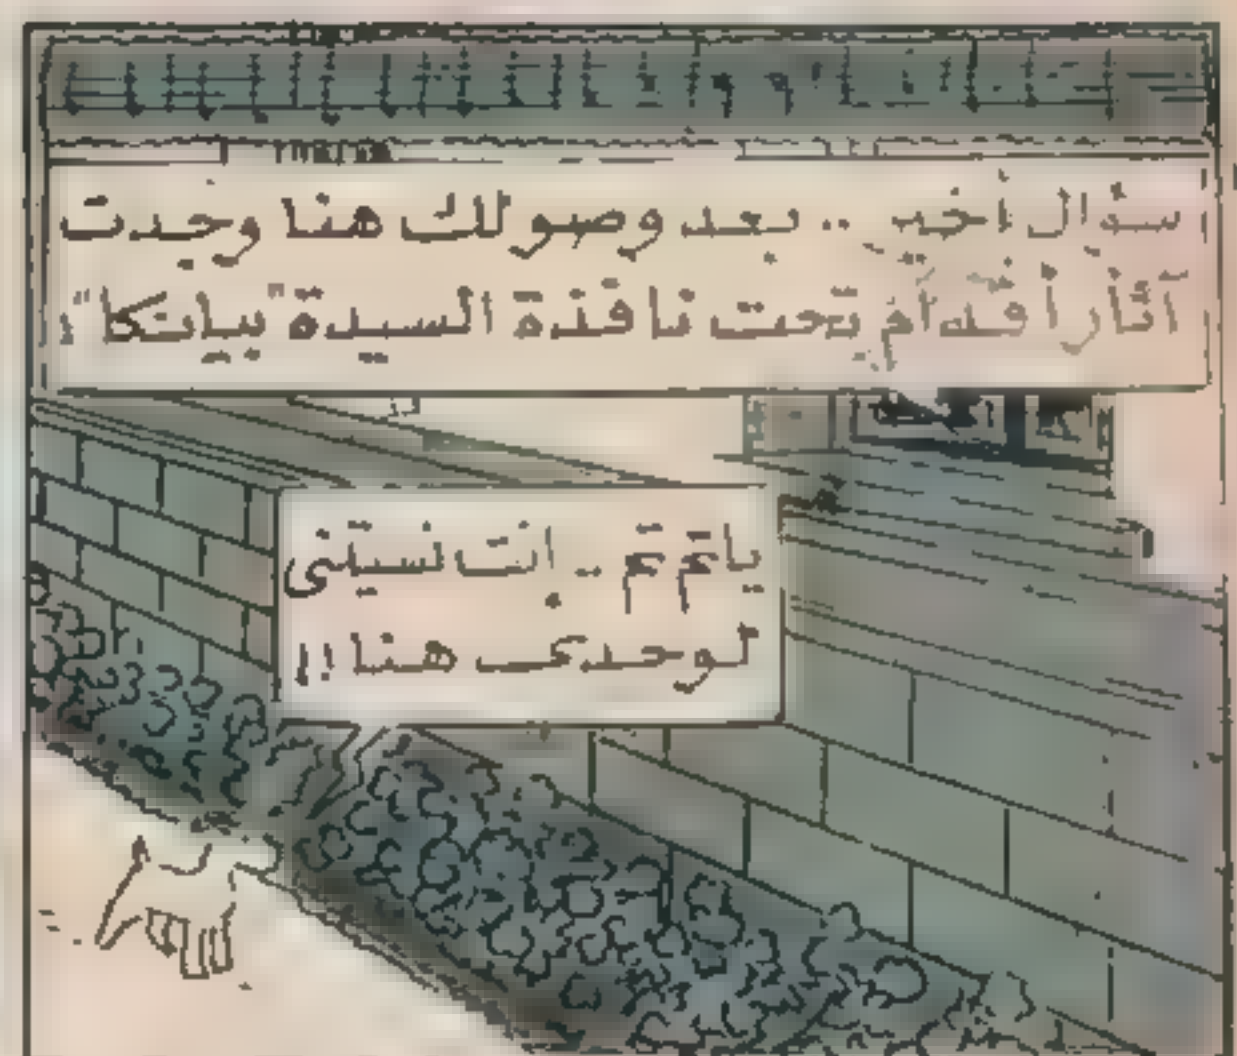 سؤال أخير .. بعد وصولك هنا وجدت
آثار أقدام تحت نافذة السيدة "بيانكا"!
يا تم تم .. انت نسيتنى
لوحدى هنا !!